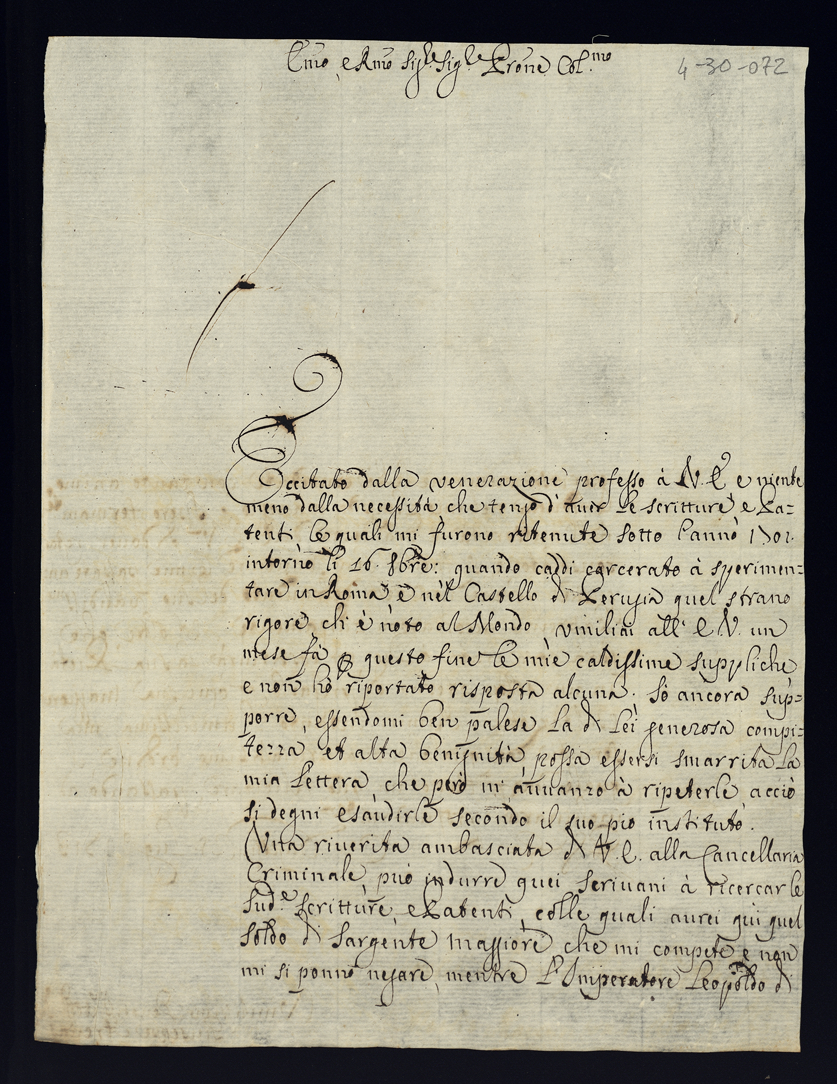 Em̃o, e Rmo Sig.re Sig.re Prone Col.mo
4-30-072
Eccitato dalla venerazione professo à V. E. e niente
meno dalla necessità che tengo d'aver le scritture e Pa=
tenti le quali mi furono ritenute sotto l'anno 1701.
intorno li 16. 8bre: quando caddi carcerato à sperimen=
tare in Roma e nel Castello di Perugia quel strano
rigore ch'è noto al Mondo, umiliai all'E.V. un
mese fà p questo fine le mie caldissime suppliche
e non hò riportato risposta alcuna. Sò ancora sup=
porre, essendomi ben palese la di Lei generosa compi=
tezza et alta benignità, possa essersi smarrita la
mia lettera, che però m'auuanzo à ripeterle acciò
si degni esaudirle secondo il suo pio instituto.
Una riuerita ambasciata di V.E. alla Cancellaria
Criminale, può indurre quei scriuani à ricercar le
sud.e scritture, e Patenti, colle quali aurei quì quel
soldo di Sargente maggiore che mi compete e non
mi si ponno negare, mentre l'Imperatore Leopoldo di